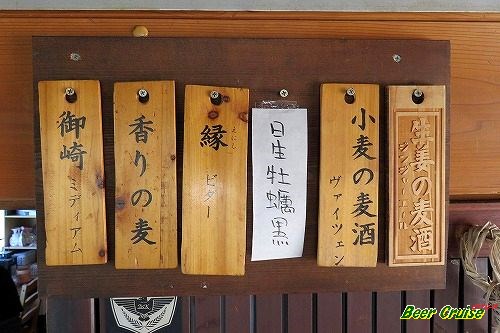 生姜の麦酒
ジンジャーエール
小麦の麦酒
ヴァイツェン
日生牡蠣黒
縁
えにし
ビター
香りの麦
御崎
ミディアム
Beer Cruise